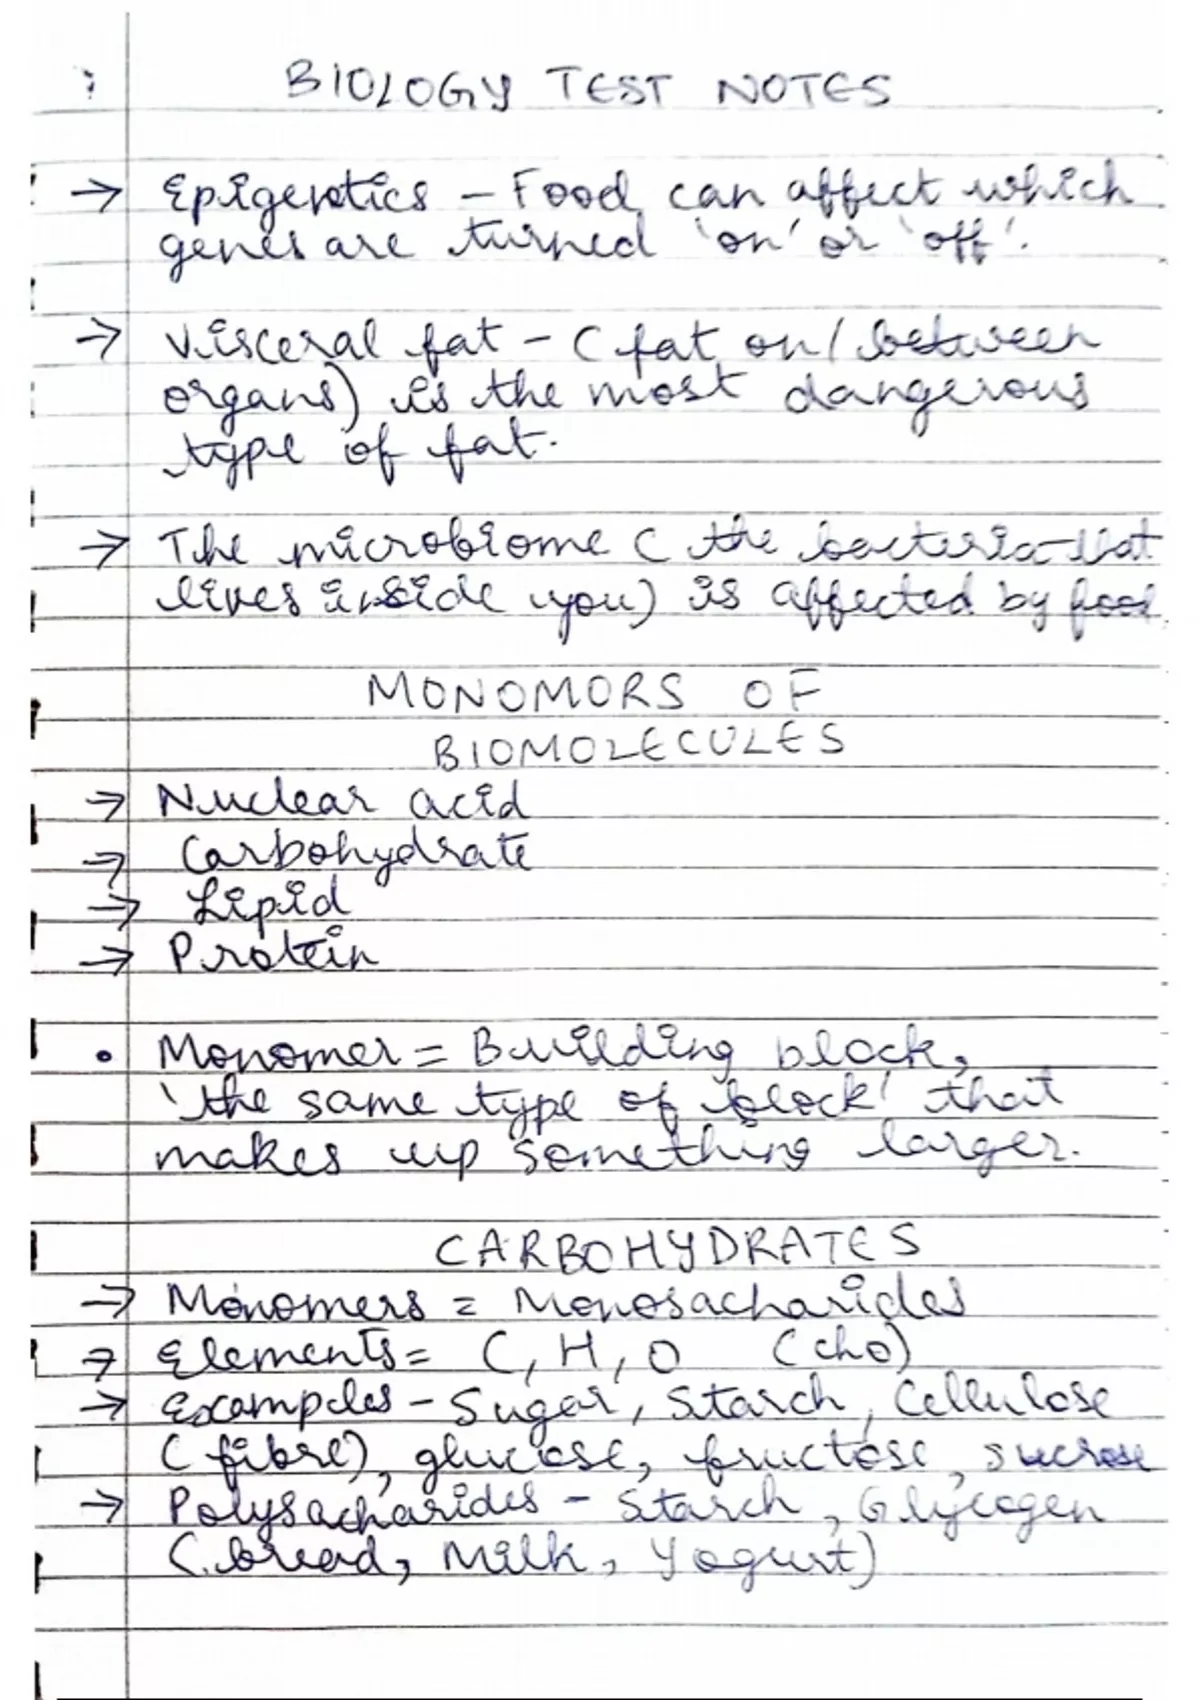 BIOLOGY TEST NOTES
→ Epigenetics - Food can affect which
genes are turned 'on' or 'off'.
→ Visceral fat - (fat on/between
organs) is the most dangerous
type of fat.
→ The microbiome (the bacteria that
lives inside you) is affected by food
MONOMORS OF
BIOMOLECULES
→ Nuclear acid
→ Carbohydrate
→ Lipid
→ Protein
• Monomer = Building block,
'the same type of block' that
makes up something larger.
CARBOHYDRATES
→ Monomers = Monosacharides
→ Elements = C, H, O (cho)
→ Exampeles - Sugar, Starch, Cellulose
(fibre), glucose, fructose, sucrose
→ Polysacharides - Starch, Glycogen
(bread, Milk, Yogurt)